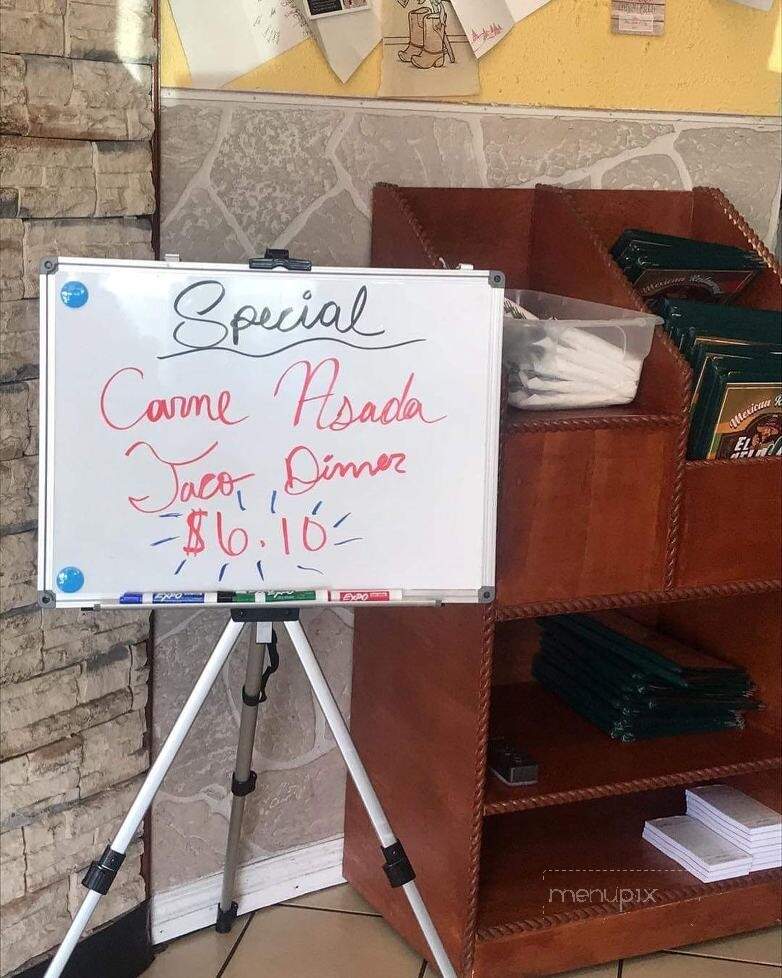 Special
Carne Asada
Taco Dinner
$6.10
EXPO
EXPO
EXPO
Mexican
Mexican
EL
menupix